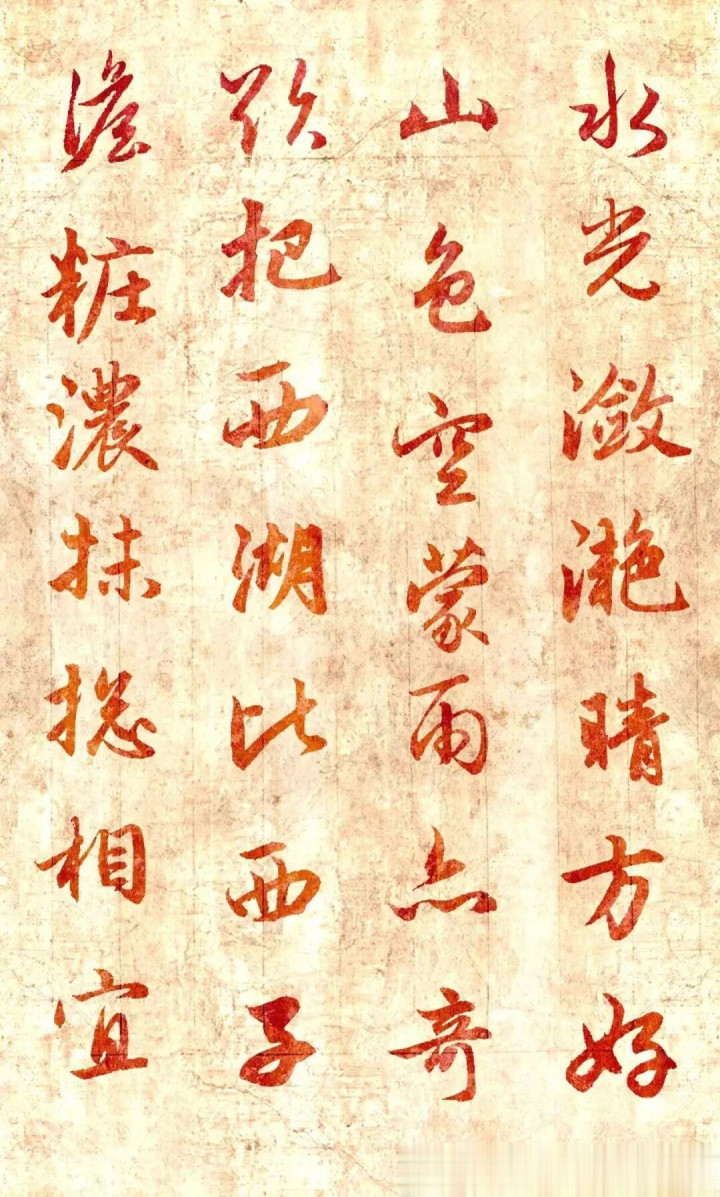 水光瀲灩晴方好
山色空蒙雨亦奇
欲把西湖比西子
澹粧濃抹揔相宜